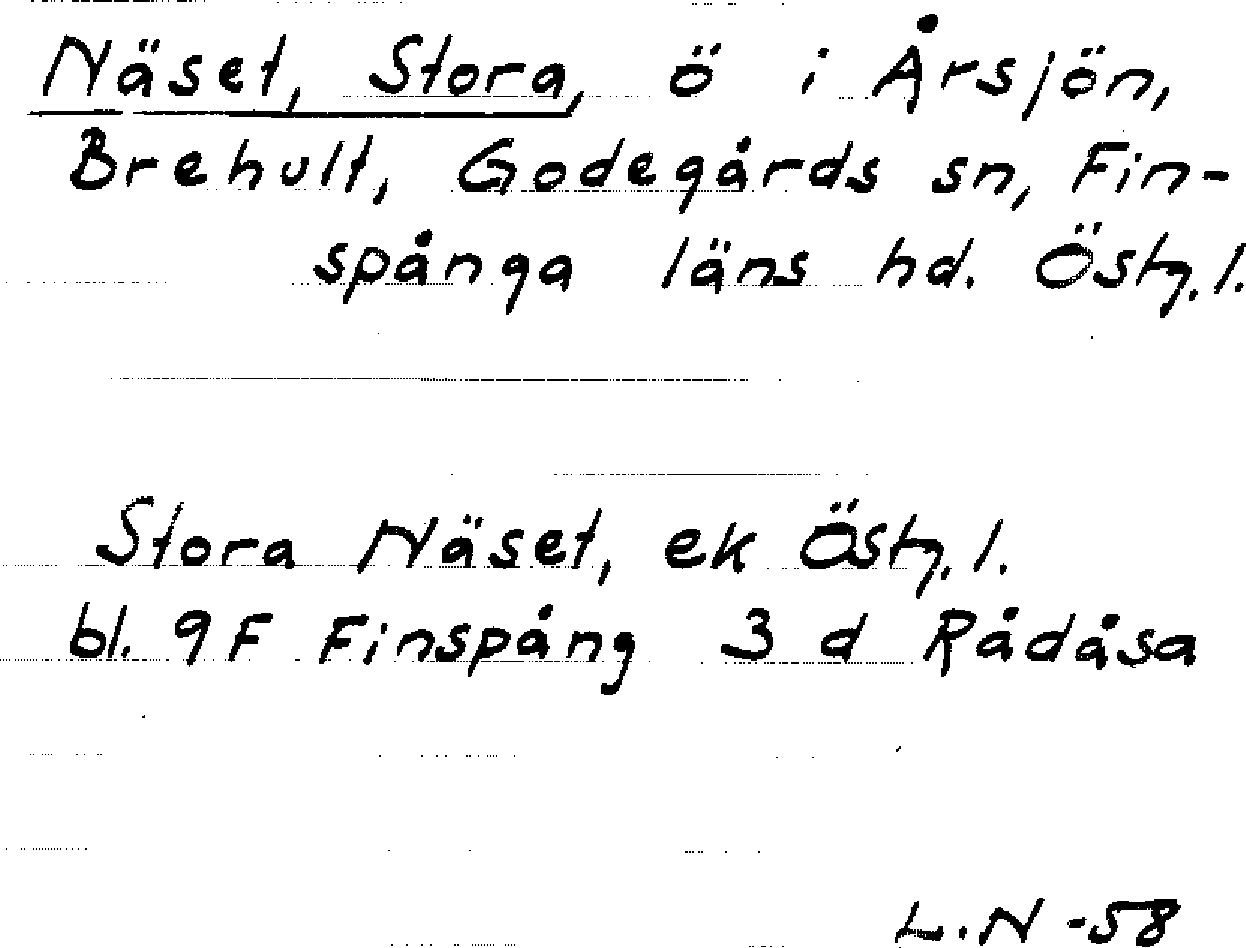 Näset, Stora, ö i Årsjön,
Brehult, Godegårds sn, Fin-
spånga läns hd. Östg. l.
Stora Näset, ek Östg. l.
bl. 9F Finspång 3 d Rådåsa
L.N -58